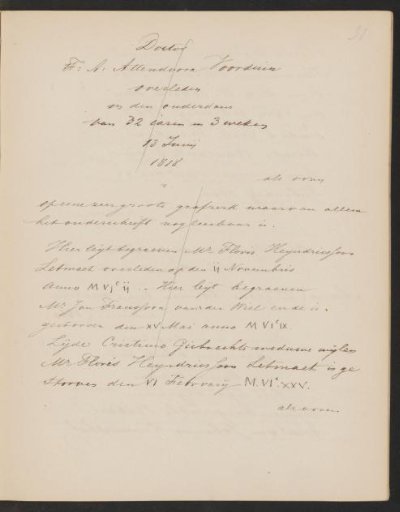 Doctor
F. A. Attendoorn Voorduin
overleden
in den ouderdom
van 32 jaren en 3 weken
13 Junij
1818
als voren
op eene zeer groote grafzerk waarvan alleen
het onderschrift nog leesbaar is.
Hier legt begraeven Mr. Floris Heyndricksoon
overleden op den ij Novembris
Anno M VIᶜ ij .. Hier leyt begraeven
Mr Jan Franssoon van der Wiel ende is
gestorven den XV Mai anno M VIᶜ IX.
Lijde weduwe wijlen
Mr Floris Heyndricksoon is ge
storven den VI Februarij M.VIᶜ.XXV.
als voren